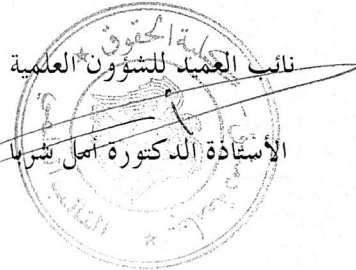 كلية الحقوق
نائب العميد للشؤون العلمية
الأستاذة الدكتورة أمل شربا